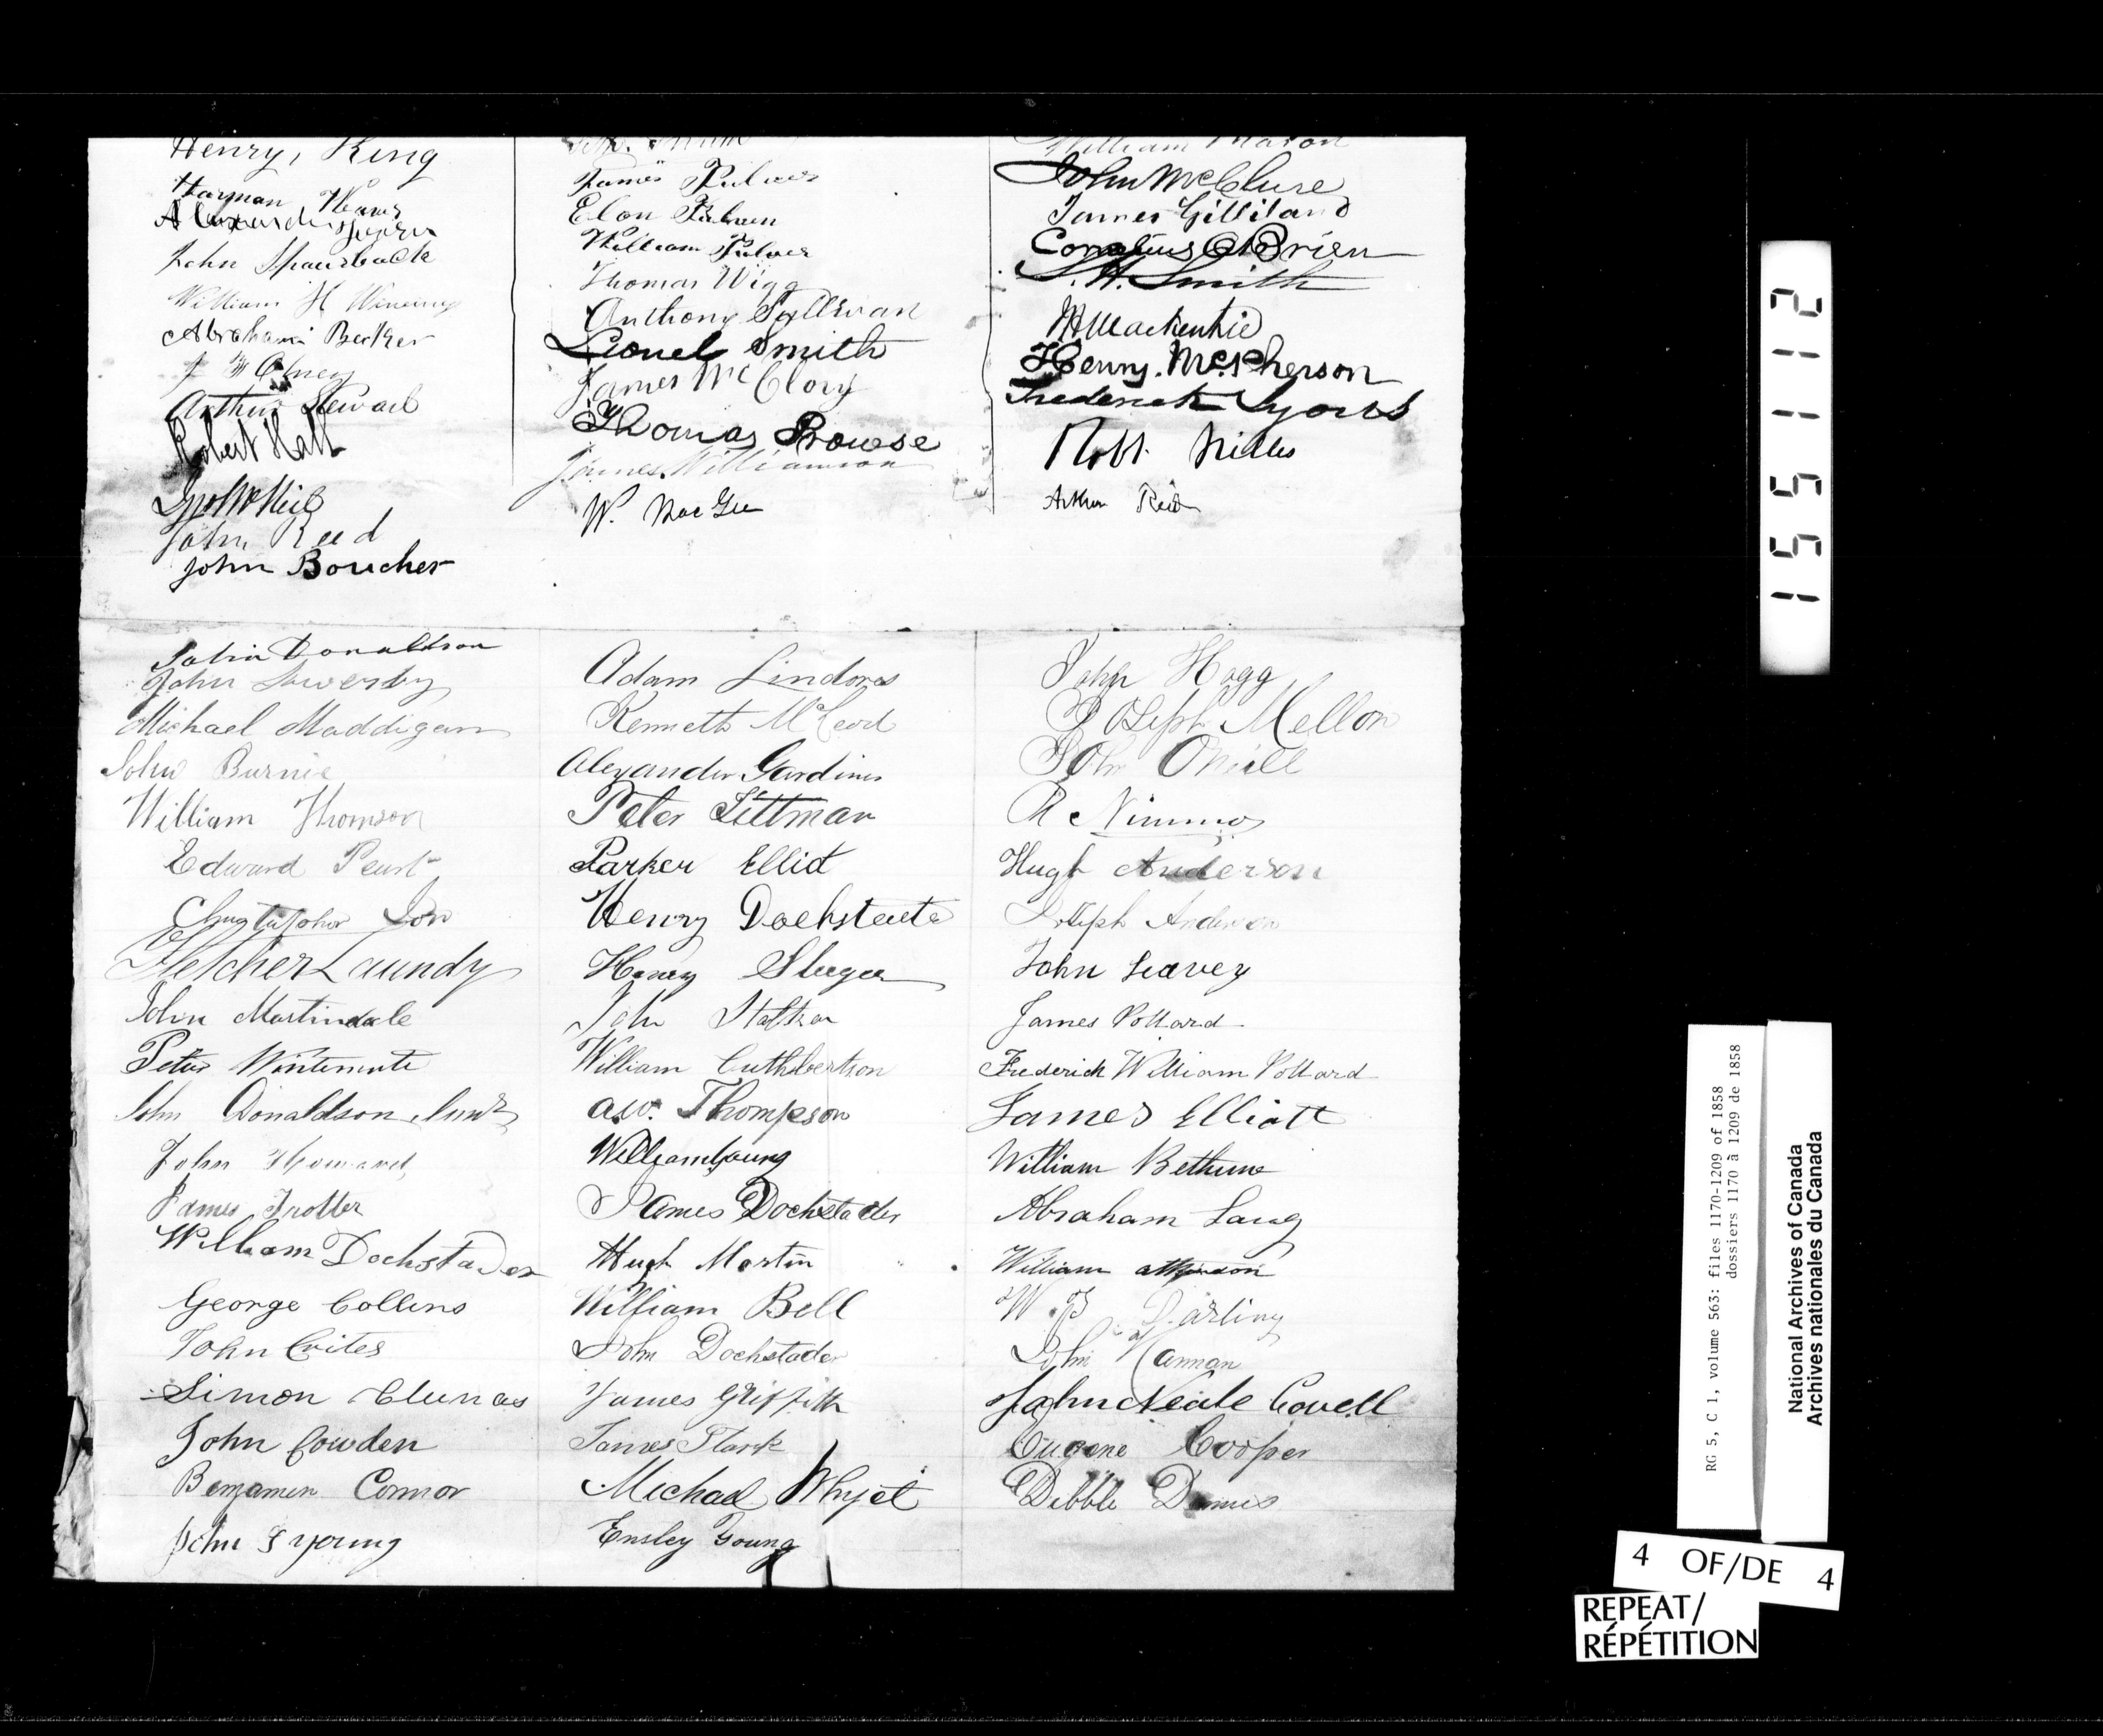 Henry, King
Harman
John
William H
Abraham Becker
Arthur Steward
Robert Hall
John Reed
John Boucher
James
William
Thomas Wigg
Anthony Sullivan
Lionel Smith
James McClory
Thomas Prowse
James Williamson
W. MacGee
William Mason
John McClure
James Gilliland
Cornelius O Brien
S. H. Smith
Mackenzie
Henry. McPherson
Frederick Lyons
Robt. Nilles
Arthur Reid
John Donaldson
John Sowerby
Michael Maddigan
John Burnie
William Thomson
Edward Peart
Christopher Lon
Fletcher Laundy
John Martindale
Peter Wintemute
John Donaldson, Junr
John Howard
James Trotter
William Dochstader
George Collins
John Crites
Simon Clunas
John Cowden
Benjamin Connor
John S Young
Adam Lindores
Kenneth McLeod
Alexander Gardiner
Peter Sittman
Parker Elliot
Henry Dochstader
Henry
John Stalker
William Cuthbertson
A.W. Thompson
William Young
James Dochstader
Hugh Martin
William Bell
John Dochstader
James Griffith
James Stark
Michael Whyet
Ensley Young
John Hogg
Joseph Mellon
John Oneill
R Nimmo
Hugh Anderson
Joseph Anderson
John Leavey
James Pollard
Frederick William Pollard
James Elliott
William Bethune
Abraham Laing
William Atkinson
W. B. Darling
John Hannan
John Neale Covell
Eugene Cooper
Dibble Dennis
155112
RG 5, C 1, volume 563: files 1170-1209 of 1858
dossiers 1170 à 1209 de 1858
National Archives of Canada
Archives nationales du Canada
4 OF/DE 4
REPEAT/
RÉPÉTITION